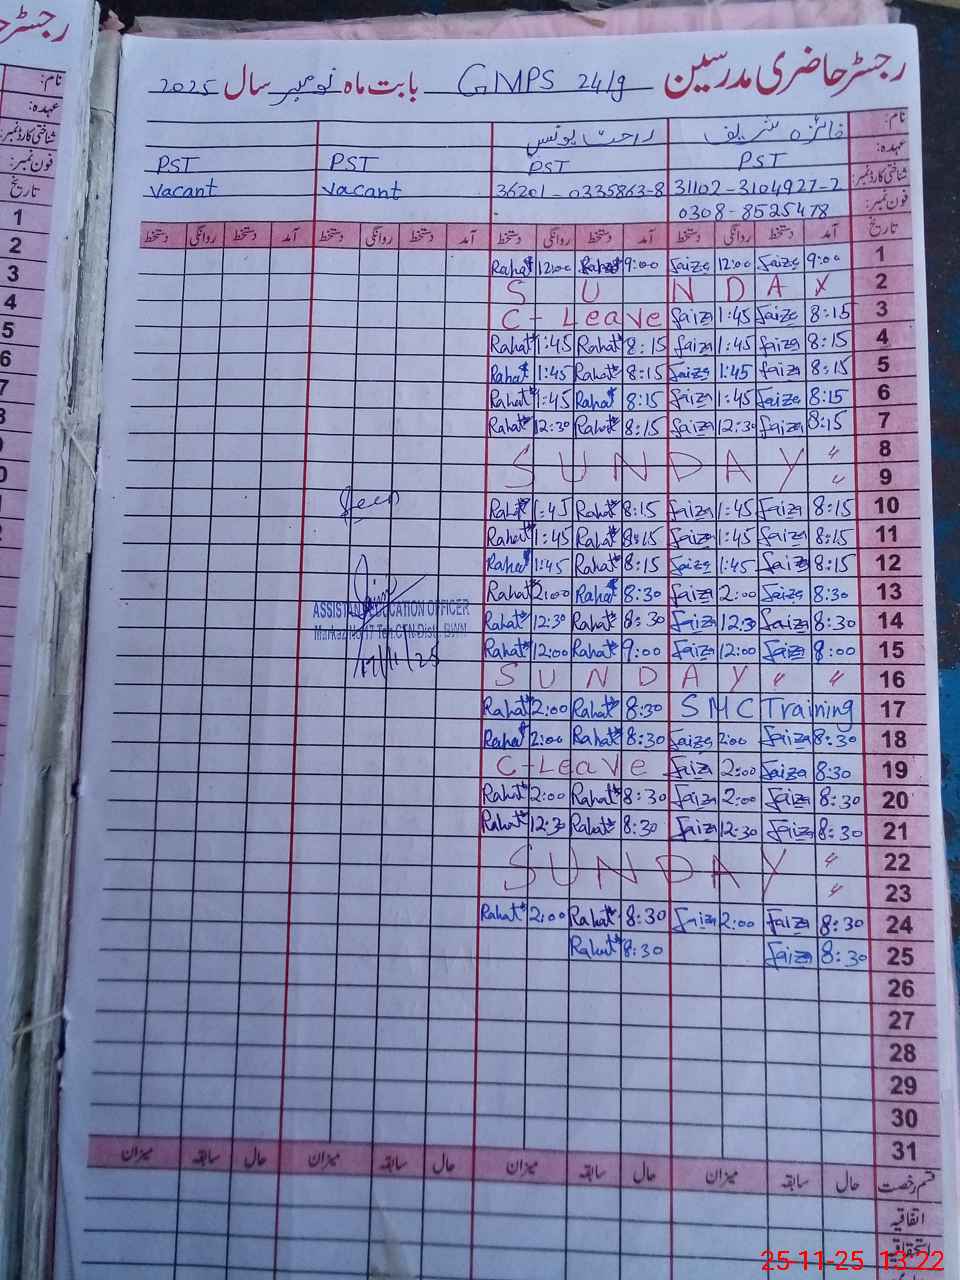 رجسٹر حاضری مدرسین GMPS 24/g بابت ماہ نومبر سال 2025
نام: فائزہ شریف راحت یونس
عہدہ: PST PST PST PST
شناختی کارڈ نمبر: 31102-3104927-2 36201-0335863-8 vacant vacant
فون نمبر: 0308-8525478
تاریخ آمد دستخط روانگی دستخط آمد دستخط روانگی دستخط آمد دستخط روانگی دستخط آمد دستخط روانگی دستخط
1 9:00 Faiza 12:00 Faiza 9:00 Rahat 12:00 Rahat
2 S U N D A Y
3 8:15 Faiza 1:45 Faiza C-Leave
4 8:15 Faiza 1:45 Faiza 8:15 Rahat 1:45 Rahat
5 8:15 Faiza 1:45 Faiza 8:15 Rahat 1:45 Rahat
6 8:15 Faiza 1:45 Faiza 8:15 Rahat 1:45 Rahat
7 8:15 Faiza 12:30 Faiza 8:15 Rahat 12:30 Rahat
8 S U N D A Y "
9 "
10 8:15 Faiza 1:45 Faiza 8:15 Rahat 1:45 Rahat
11 8:15 Faiza 1:45 Faiza 8:15 Rahat 1:45 Rahat
12 8:15 Faiza 1:45 Faiza 8:15 Rahat 1:45 Rahat
13 8:30 Faiza 2:00 Faiza 8:30 Rahat 2:00 Rahat
14 8:30 Faiza 12:30 Faiza 8:30 Rahat 12:30 Rahat
15 8:00 Faiza 12:00 Faiza 9:00 Rahat 12:00 Rahat
16 S U N D A Y " "
17 SMC Training 8:30 Rahat 2:00 Rahat
18 8:30 Faiza 2:00 Faiza 8:30 Rahat 2:00 Rahat
19 8:30 Faiza 2:00 Faiza C-Leave
20 8:30 Faiza 2:00 Faiza 8:30 Rahat 2:00 Rahat
21 8:30 Faiza 12:30 Faiza 8:30 Rahat 12:30 Rahat
22 S U N D A Y "
23 "
24 8:30 Faiza 2:00 Faiza 8:30 Rahat 2:00 Rahat
25 8:30 Faiza 8:30 Rahat
26
27
28
29
30
31
قسم رخصت حال سابقہ میزان حال سابقہ میزان حال سابقہ میزان حال سابقہ میزان
اتفاقیہ
استحقاقیہ
Seen
ASSISTANT EDUCATION OFFICER
Markaz No 17 Teh. CTN Distt. BWN
17/11/25
رجسٹر
نام:
عہدہ:
شناختی کارڈ نمبر:
فون نمبر:
تاریخ
1
2
3
4
5
25-11-25 13:22